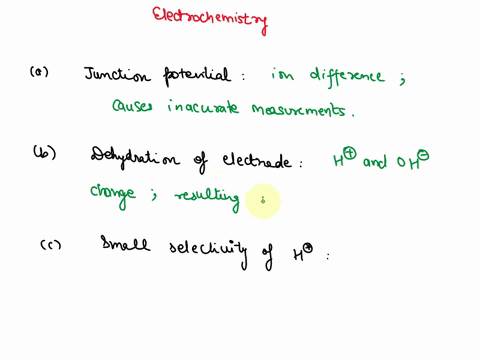 Electrochemistry
(a) Junction potential : ion difference ;
causes inaccurate measurements.
(b) Dehydration of electrode : H⊕ and OH⊖
change ; resulting i
(c) Small selectivity of H⊕ :